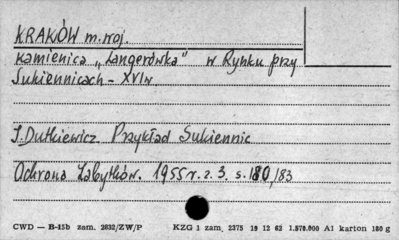 KRAKÓW m. woj.
Kamienica „Langerówka" w Rynku przy
Sukiennicach - XVI w
J. Dutkiewicz. Przykład Sukiennic
Ochrona Zabytków. 1955 r. z. 3. s. 180,183
CWD — B-15b zam. 2032/ZW/P KZG 1 zam. 2375 19 12 62 1.570.000 A1 karton 180 g